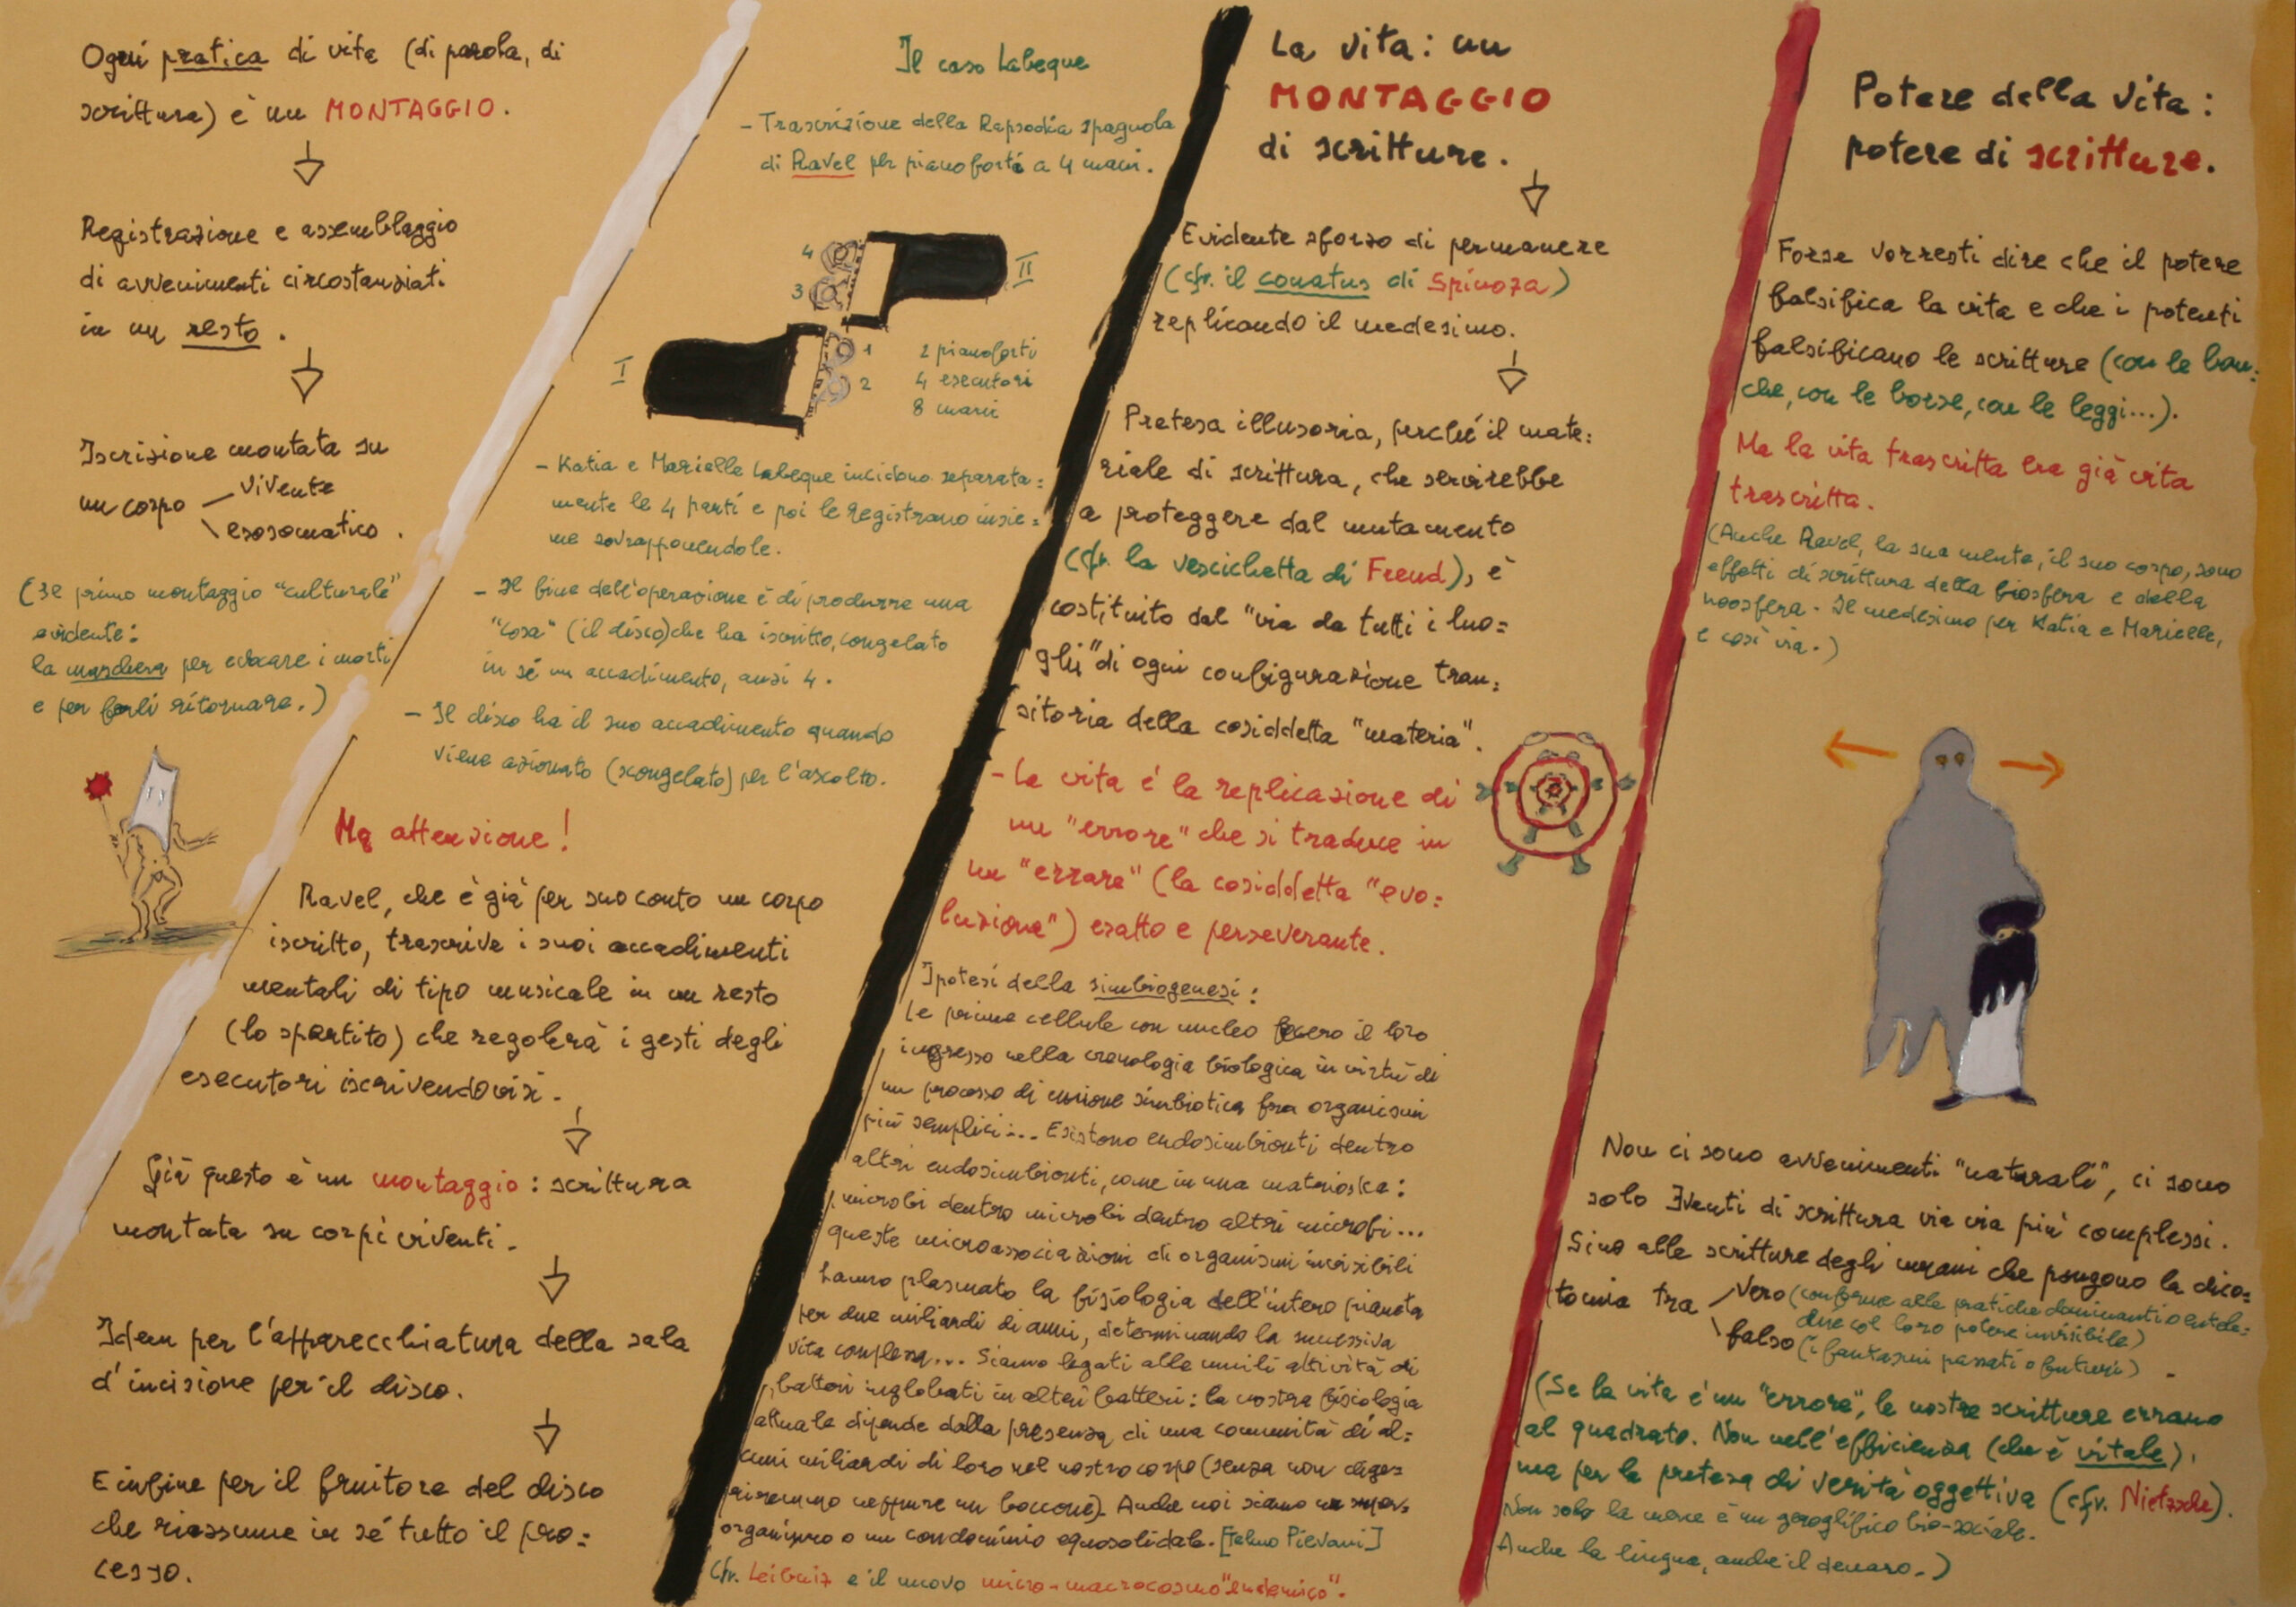 Ogni pratica di vita (di parola, di
scrittura) è un MONTAGGIO.
Registrazione e assemblaggio
di avvenimenti circostanziati
in un resto.
Iscrizione montata su
un corpo vivente
esosomatico.
(Il primo montaggio "culturale"
evidente:
la maschera per evocare i morti
e per farli ritornare.)
Il caso Labeque
- Trascrizione della Rapsodia spagnola
di Ravel per pianoforte a 4 mani.
4
3
II
I
1
2
2 pianoforti
4 esecutori
8 mani
- Katia e Marielle Labeque incidono separata=
mente le 4 parti e poi le registrano insie=
me sovrapponendole.
- Il fine dell'operazione è di produrre una
"cosa" (il disco) che ha iscritto, congelato
in sé un accadimento, anzi 4.
- Il disco ha il suo accadimento quando
viene azionato (scongelato) per l'ascolto.
Ma attenzione!
Ravel, che è già per suo conto un corpo
iscritto, trascrive i suoi accadimenti
mentali di tipo musicale in un resto
(lo spartito) che regolerà i gesti degli
esecutori iscrivendovisi.
Già questo è un montaggio: scrittura
montata su corpi viventi.
Idem per l'apparecchiatura della sala
d'incisione per il disco.
E infine per il fruitore del disco
che riassume in sé tutto il pro=
cesso.
La vita: un
MONTAGGIO
di scritture.
Evidente sforzo di permanere
(cfr. il conatus di Spinoza)
replicando il medesimo.
Pretesa illusoria, perché il mate=
riale di scrittura, che servirebbe
a proteggere dal mutamento
(cfr. la vescichetta di Freud), è
costituito dal "via da tutti i luo=
ghi" di ogni configurazione tran=
sitoria della cosiddetta "materia".
- La vita è la replicazione di
un "errore" che si traduce in
un "errare" (la cosiddetta "evo=
luzione") esatto e perseverante.
Ipotesi della simbiogenesi:
Le prime cellule con nucleo fecero il loro
ingresso nella cronologia biologica in virtù di
un processo di unione simbiotica fra organismi
più semplici... Esistono endosimbionti dentro
altri endosimbionti, come in una matrioska:
microbi dentro microbi dentro altri microbi...
queste microassociazioni di organismi invisibili
hanno plasmato la fisiologia dell'intero pianeta
per due miliardi di anni, determinando la successiva
vita complessa... Siamo legati alle umili attività di
batteri inglobati in altri batteri: la nostra fisiologia
attuale dipende dalla presenza di una comunità di al=
cuni miliardi di loro nel nostro corpo (senza non dige=
riremmo neppure un boccone). Anche noi siamo un super=
organismo o un condominio equosolidale. [Telmo Pievani]
Cfr. Leibniz e il nuovo micro-macrocosmo "endemico".
Potere della vita:
potere di scritture.
Forse vorresti dire che il potere
falsifica la vita e che i potenti
falsificano le scritture (con le ban=
che, con le borse, con le leggi...).
Ma la vita trascritta era già vita
trascritta.
(Anche Ravel, la sua mente, il suo corpo, sono
effetti di scrittura della biosfera e della
noosfera. Il medesimo per Katia e Marielle,
e così via.)
Non ci sono avvenimenti "naturali", ci sono
solo Eventi di scrittura via via più complessi.
Sino alle scritture degli umani che pongono la dico=
tomia tra vero (conforme alle pratiche dominanti o
col loro potere invisibile)
falso (i fantasmi passati o futuri).
(Se la vita è un "errore", le nostre scritture errano
al quadrato. Non nell'efficienza (che è vitale),
ma per la pretesa di verità oggettiva (cfr. Nietzsche).
Non solo la merce è un geroglifico bio-sociale.
Anche la lingua, anche il denaro.)